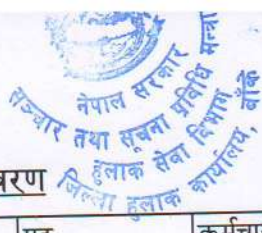 नेपाल सरकार
सञ्चार तथा सूचना प्रविधि मन्त्रा
हुलाक सेवा विभाग
जिल्ला हुलाक कार्यालय, बाँके
वरण
पद
कर्मचा